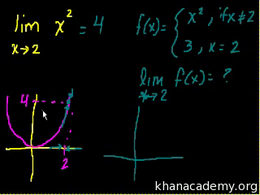 lim x² = 4
x→2
f(x) = { x², if x≠2
3, x = 2
lim f(x) = ?
x→2
4
2
khanacademy.org